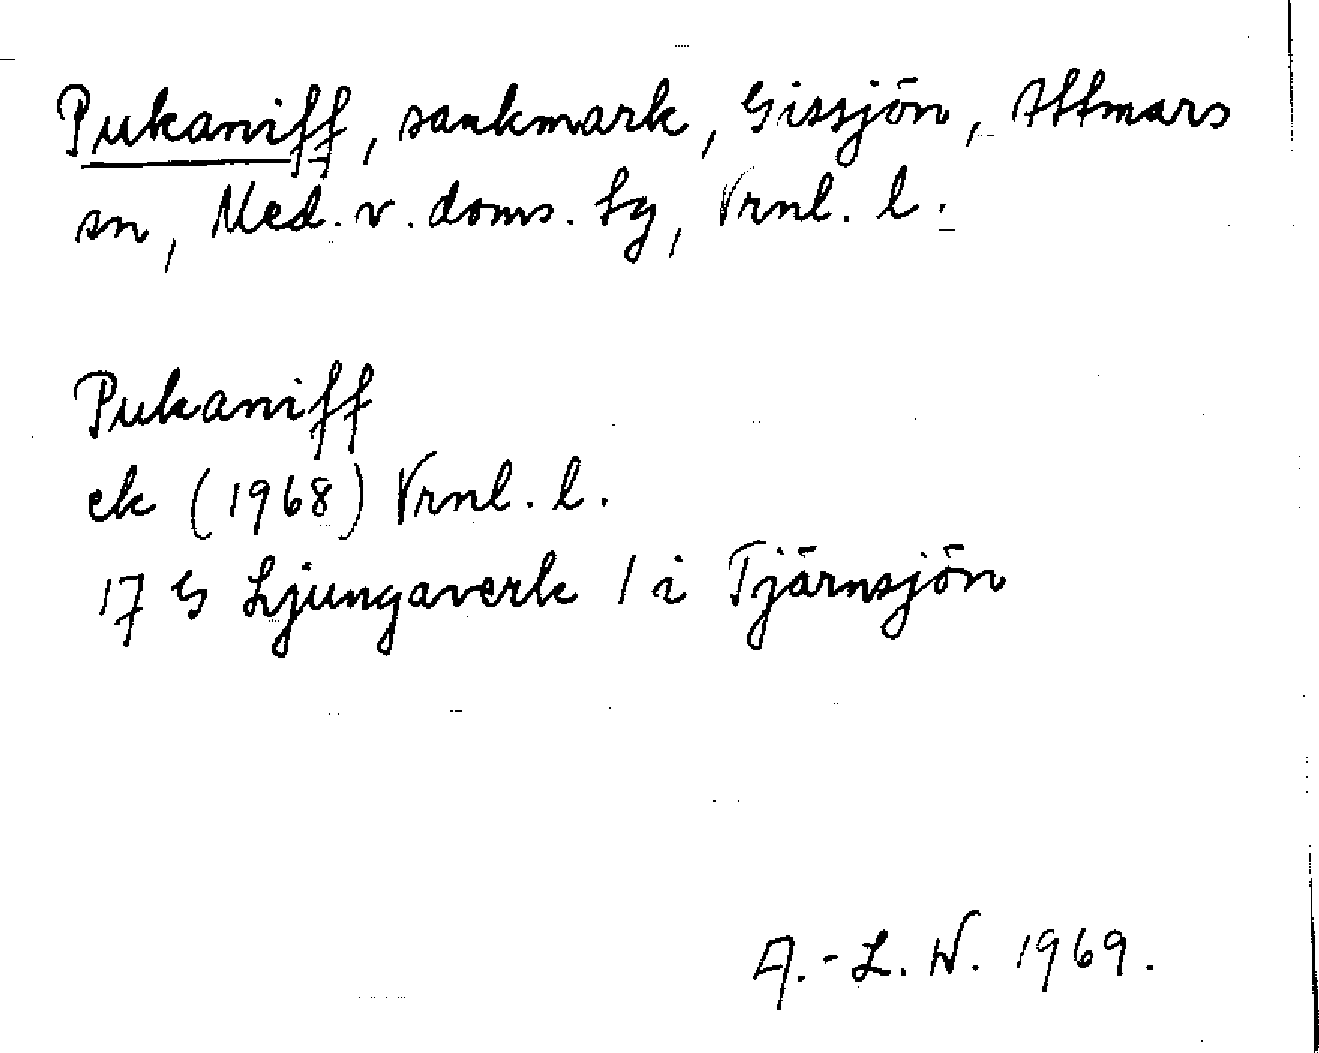 Pukaniff, sankmark, Gissjön, Attmars
sn, Med. v. doms. tg, Vrnl. l.
Pukaniff
ek (1968) Vrnl. l.
17 G Ljungaverk / i Tjärnsjön
A.-L. W. 1969.